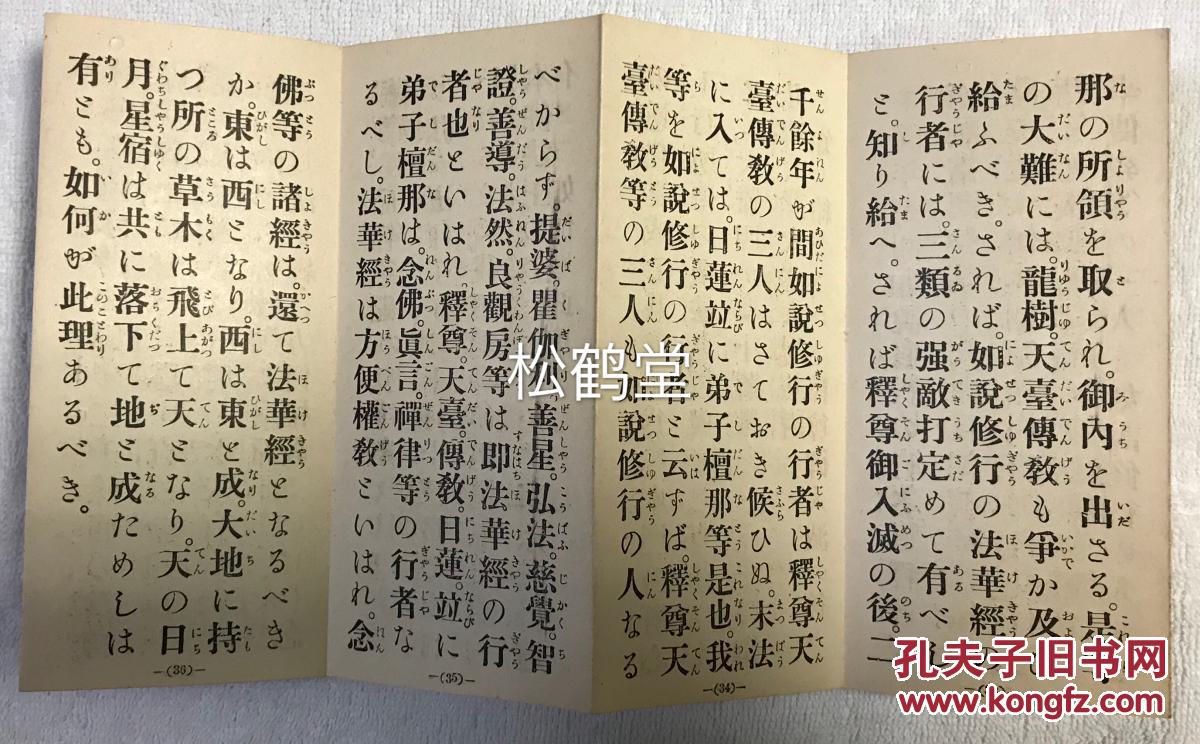 那の所領を取られ。御內を出さる。是等
の大難には。龍樹。天臺傳敎も爭か及
給ふべき。されば。如說修行の法華經の
行者には。三類の强敵打定めて有べし
と。知り給へ。されば釋尊御入滅の後。二
千餘年が間如說修行の行者は釋尊天
臺傳敎の三人はさておき候ひぬ。末法
に入ては。日蓮竝に弟子檀那等是也。我
等を如說修行の行者と云ずば。釋尊天
臺傳敎等の三人も如說修行の人なる
べからず。提婆。瞿伽利。善星。弘法慈覺。智
證。善導。法然。良觀房等は卽法華經の行
者也といはれ。釋尊天臺。傳敎。日蓮。竝に
弟子檀那は。念佛。眞言。禪律等の行者な
るべし。法華經は方便權敎といはれ。念
佛等の諸經は。還て法華經となるべき
か。東は西となり。西は東と成。大地に持
つ所の草木は飛上て天となり。天の日
月。星宿は共に落下て地と成ためしは
有とも。如何が此理あるべき。
—(34)—
—(35)—
—(36)—
松鹤堂
孔夫子旧书网
www.kongfz.com